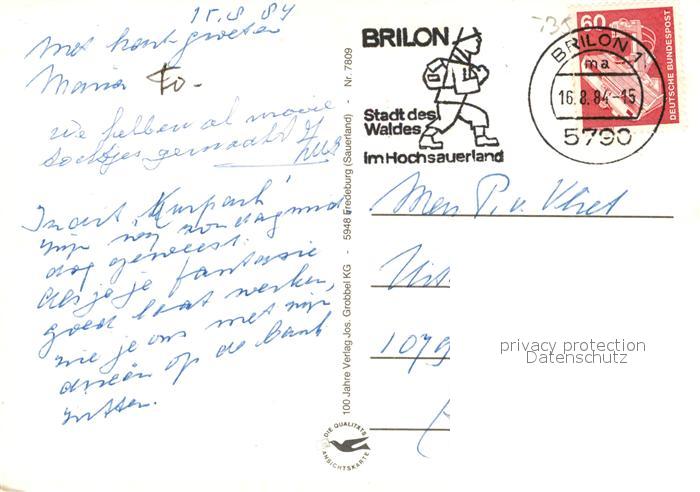 15.8.84
Met hart groeten
Maria Fo-
We hebben al mooie
tochtjes gemaakt
In dit Kurpark
zijn wij zondagmid
dag geweest.
Als je je fantasie
goed laat werken,
zie je ons met zijn
drieën op de bank
zitten.
Nr. 7809
5948 Fredeburg (Sauerland)
100 Jahre Verlag Jos. Grobbel KG
DIE QUALITÄTS
ANSICHTSKARTE
BRILON
Stadt des
Waldes
im Hochsauerland
60
DEUTSCHE BUNDESPOST
BRILON 1
ma
16.8.84-15
5790
P. v. Vliet
Uit
1079
privacy protection
Datenschutz